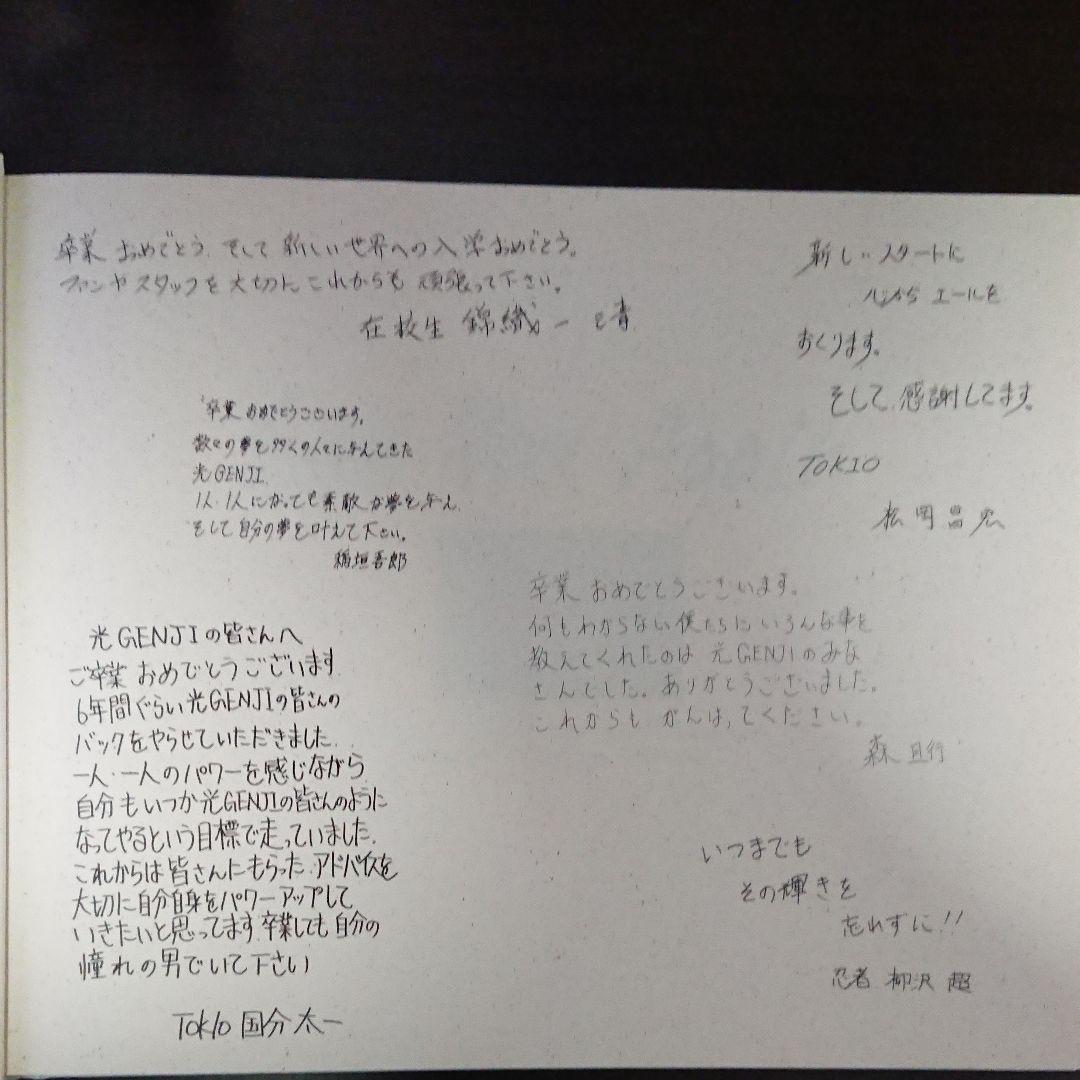 卒業 おめでとう、そして 新しい世界への入学おめでとう。
ファンやスタッフを大切にこれからも 頑張って下さい。
在校生 錦織一清
卒業おめでとうございます。
数々の夢を多くの人々に与えてきた
光GENJI
1人・1人になっても素敵な夢を与え、
そして自分の夢を叶えて下さい。
稲垣吾郎
光GENJIの皆さんへ
ご卒業 おめでとうございます
6年間ぐらい光GENJIの皆さんの
バックをやらせていただきました。
一人・一人のパワーを感じながら
自分もいつか光GENJIの皆さんのように
なってやるという目標で走っていました。
これからは皆さんにもらった アドバイスを
大切に自分自身をパワーアップして
いきたいと思ってます 卒業しても自分の
憧れの男でいて下さい
TOKIO 国分太一
新しいスタートに
心から エールを
おくります。
そして、感謝してます。
TOKIO
松岡昌宏
卒業 おめでとうございます。
何もわからない僕たちにいろんな事を
教えてくれたのは 光GENJIのみな
さんでした。ありがとうございました。
これからも がんばってください。
森 且行
いつまでも
その輝きを
忘れずに!!
忍者 柳沢 超